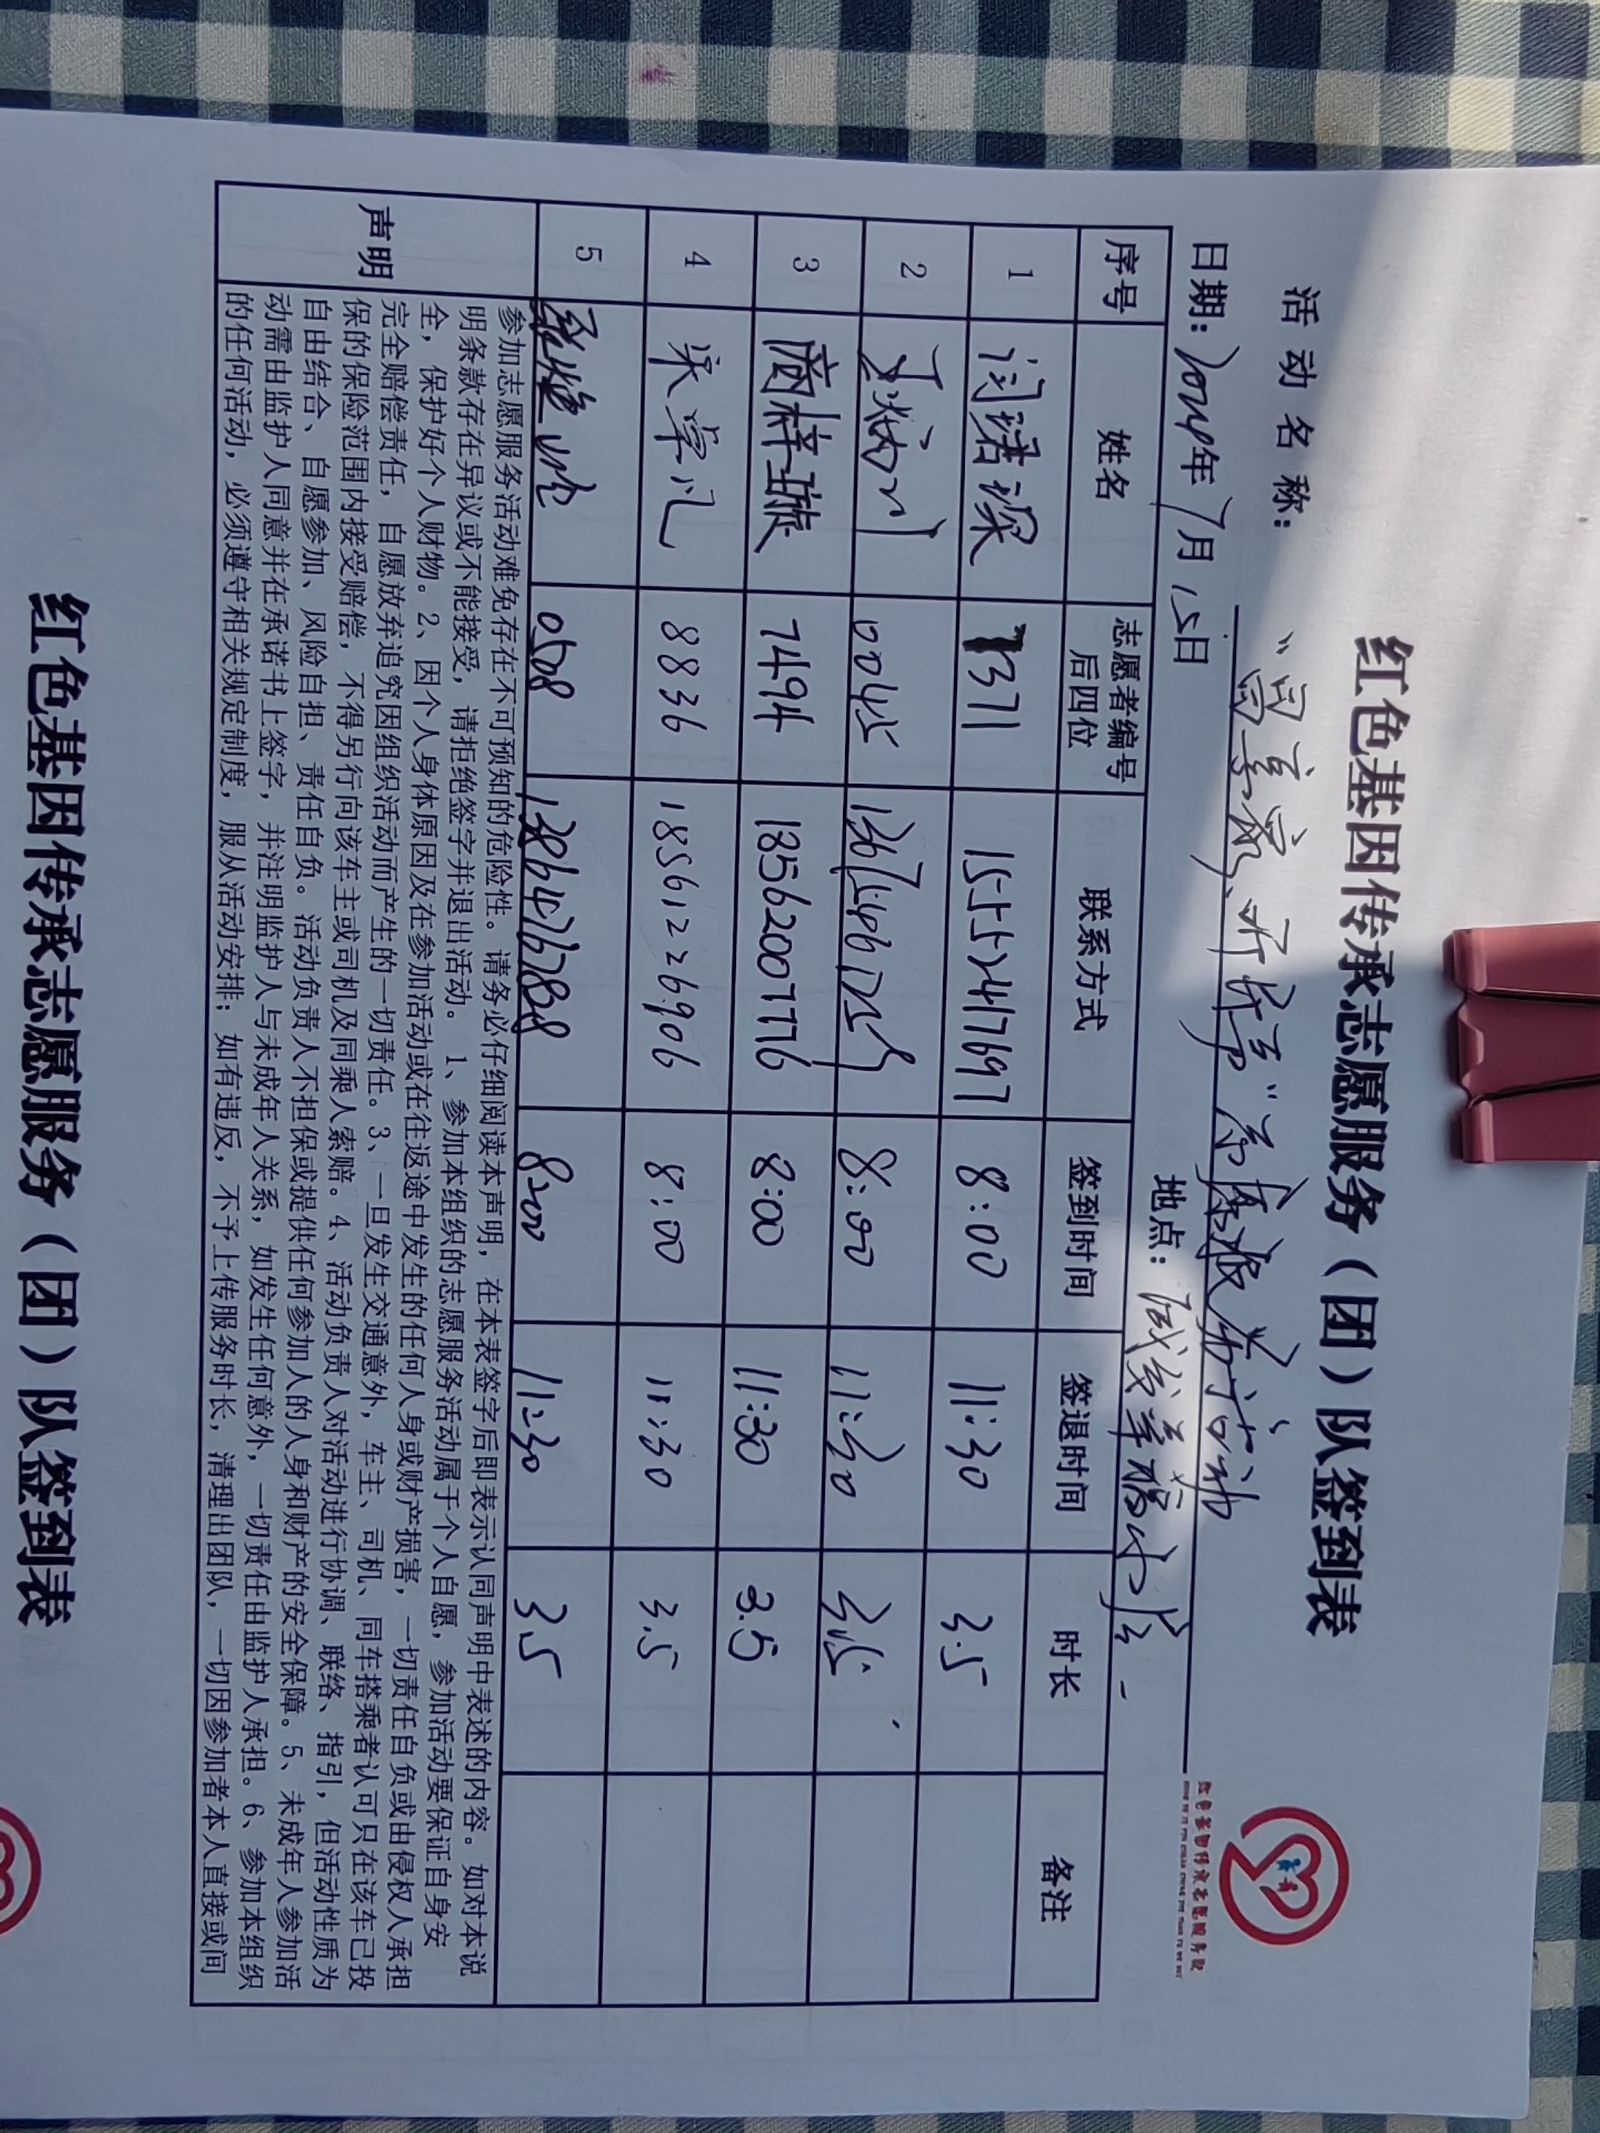 红色基因传承志愿服务（团）队签到表
活动名称：
日期：2024年7月15日 地点：
序号 姓名 志愿者编号后四位 联系方式 签到时间 签退时间 时长 备注
1 闫珺琛 1371 15552417697 8:00 11:30 3.5
2 0045 8:00 11:30 3.5
3 商梓璇 7494 18562007776 8:00 11:30 3.5
4 8836 18561226906 8:00 11:30 3.5
5 0508 13864767888 8:00 11:30 3.5
声明
参加志愿服务活动难免存在不可预知的危险性。请务必仔细阅读本声明，在本表签字后即表示认同声明中表述的内容。如对本说
明条款存在异议或不能接受，请拒绝签字并退出活动。1、参加本组织的志愿服务活动属于个人自愿，参加活动要保证自身安
全，保护好个人财物。2、因个人身体原因及在参加活动或在往返途中发生的任何人身或财产损害，一切责任自负或由侵权人承担
完全赔偿责任，自愿放弃追究因组织活动而产生的一切责任。3、一旦发生交通意外，车主、司机、同车搭乘者认可只在该车已投
保的保险范围内接受赔偿，不得另行向该车主或司机及同乘人索赔。4、活动负责人对活动进行协调、联络、指引，但活动性质为
自由结合、自愿参加、风险自担、责任自负。活动负责人不担保或提供任何参加人的人身和财产的安全保障。5、未成年人参加活
动需由监护人同意并在承诺书上签字，并注明监护人与未成年人关系，如发生任何意外，一切责任由监护人承担。6、参加本组织
的任何活动，必须遵守相关规定制度，服从活动安排；如有违反，不予上传服务时长，清理出团队，一切因参加者本人直接或间
红色基因传承志愿服务（团）队签到表